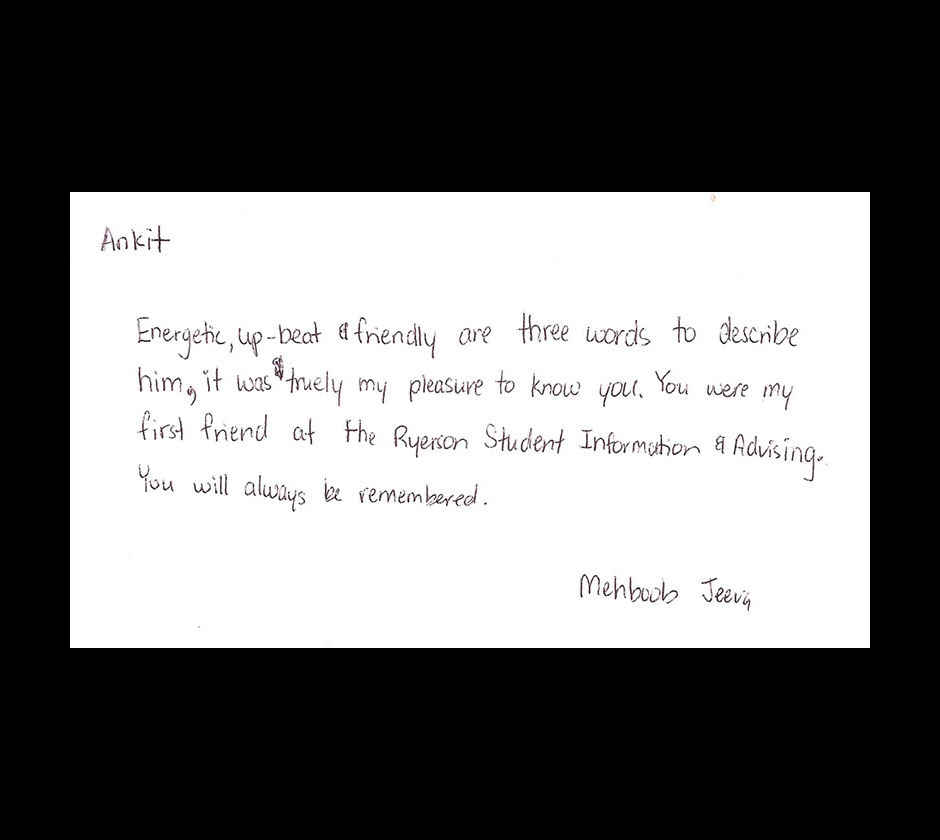 Ankit
Energetic, up-beat & friendly are three words to describe
him, it was truely my pleasure to know you. You were my
first friend at the Ryerson Student Information & Advising.
You will always be remembered.
Mehboob Jeeva